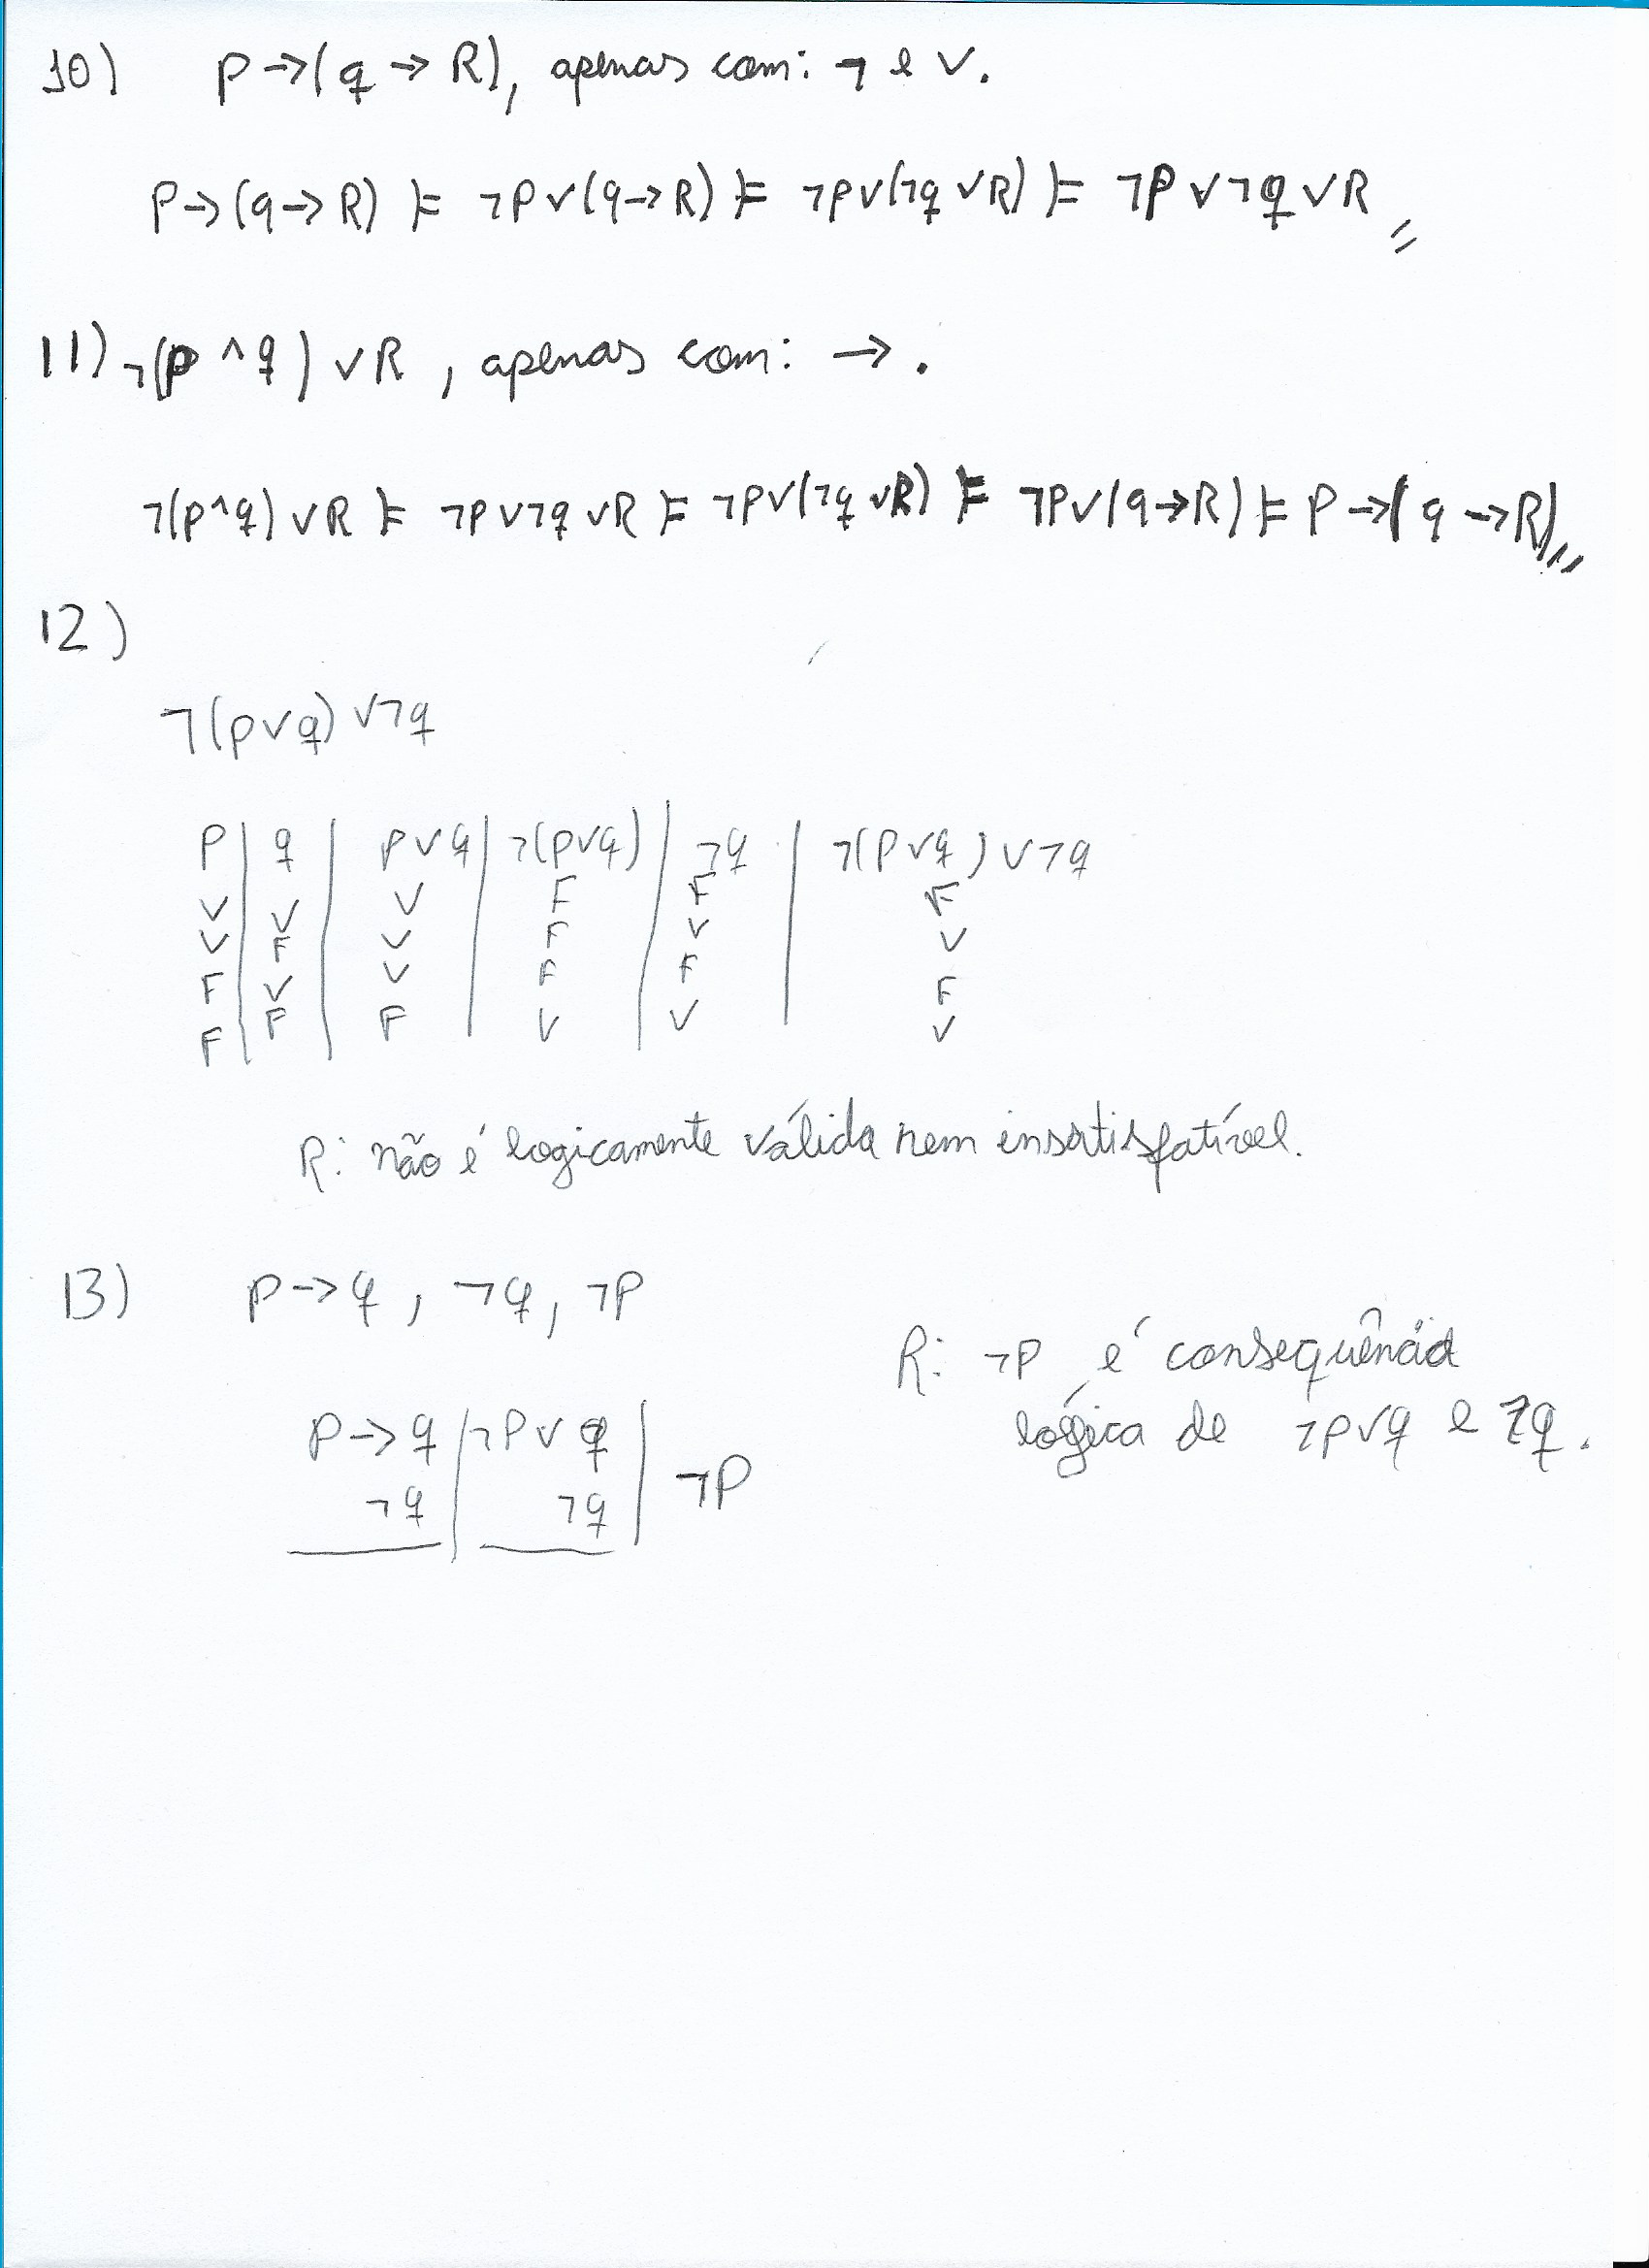 10) P→(q→R), apenas com: ¬ e ∨.
P→(q→R) ⊨ ¬P∨(q→R) ⊨ ¬P∨(¬q∨R) ⊨ ¬P∨¬q∨R //
11) ¬(p∧q)∨R, apenas com: →.
¬(p∧q)∨R ⊨ ¬P∨¬q∨R ⊨ ¬P∨(¬q∨R) ⊨ ¬P∨(q→R) ⊨ P→(q→R) //
12)
¬(p∨q)∨¬q
P | q | P∨q | ¬(P∨q) | ¬q | ¬(P∨q)∨¬q
V | V | V | F | F | F
V | F | V | F | V | V
F | V | V | F | F | F
F | F | F | V | V | V
R: não é logicamente válida nem insatisfatível.
13) P→q, ¬q, ¬P
P→q | ¬P∨q |
¬q | ¬q | ¬P
R: ¬P é consequência
lógica de ¬P∨q e ¬q.